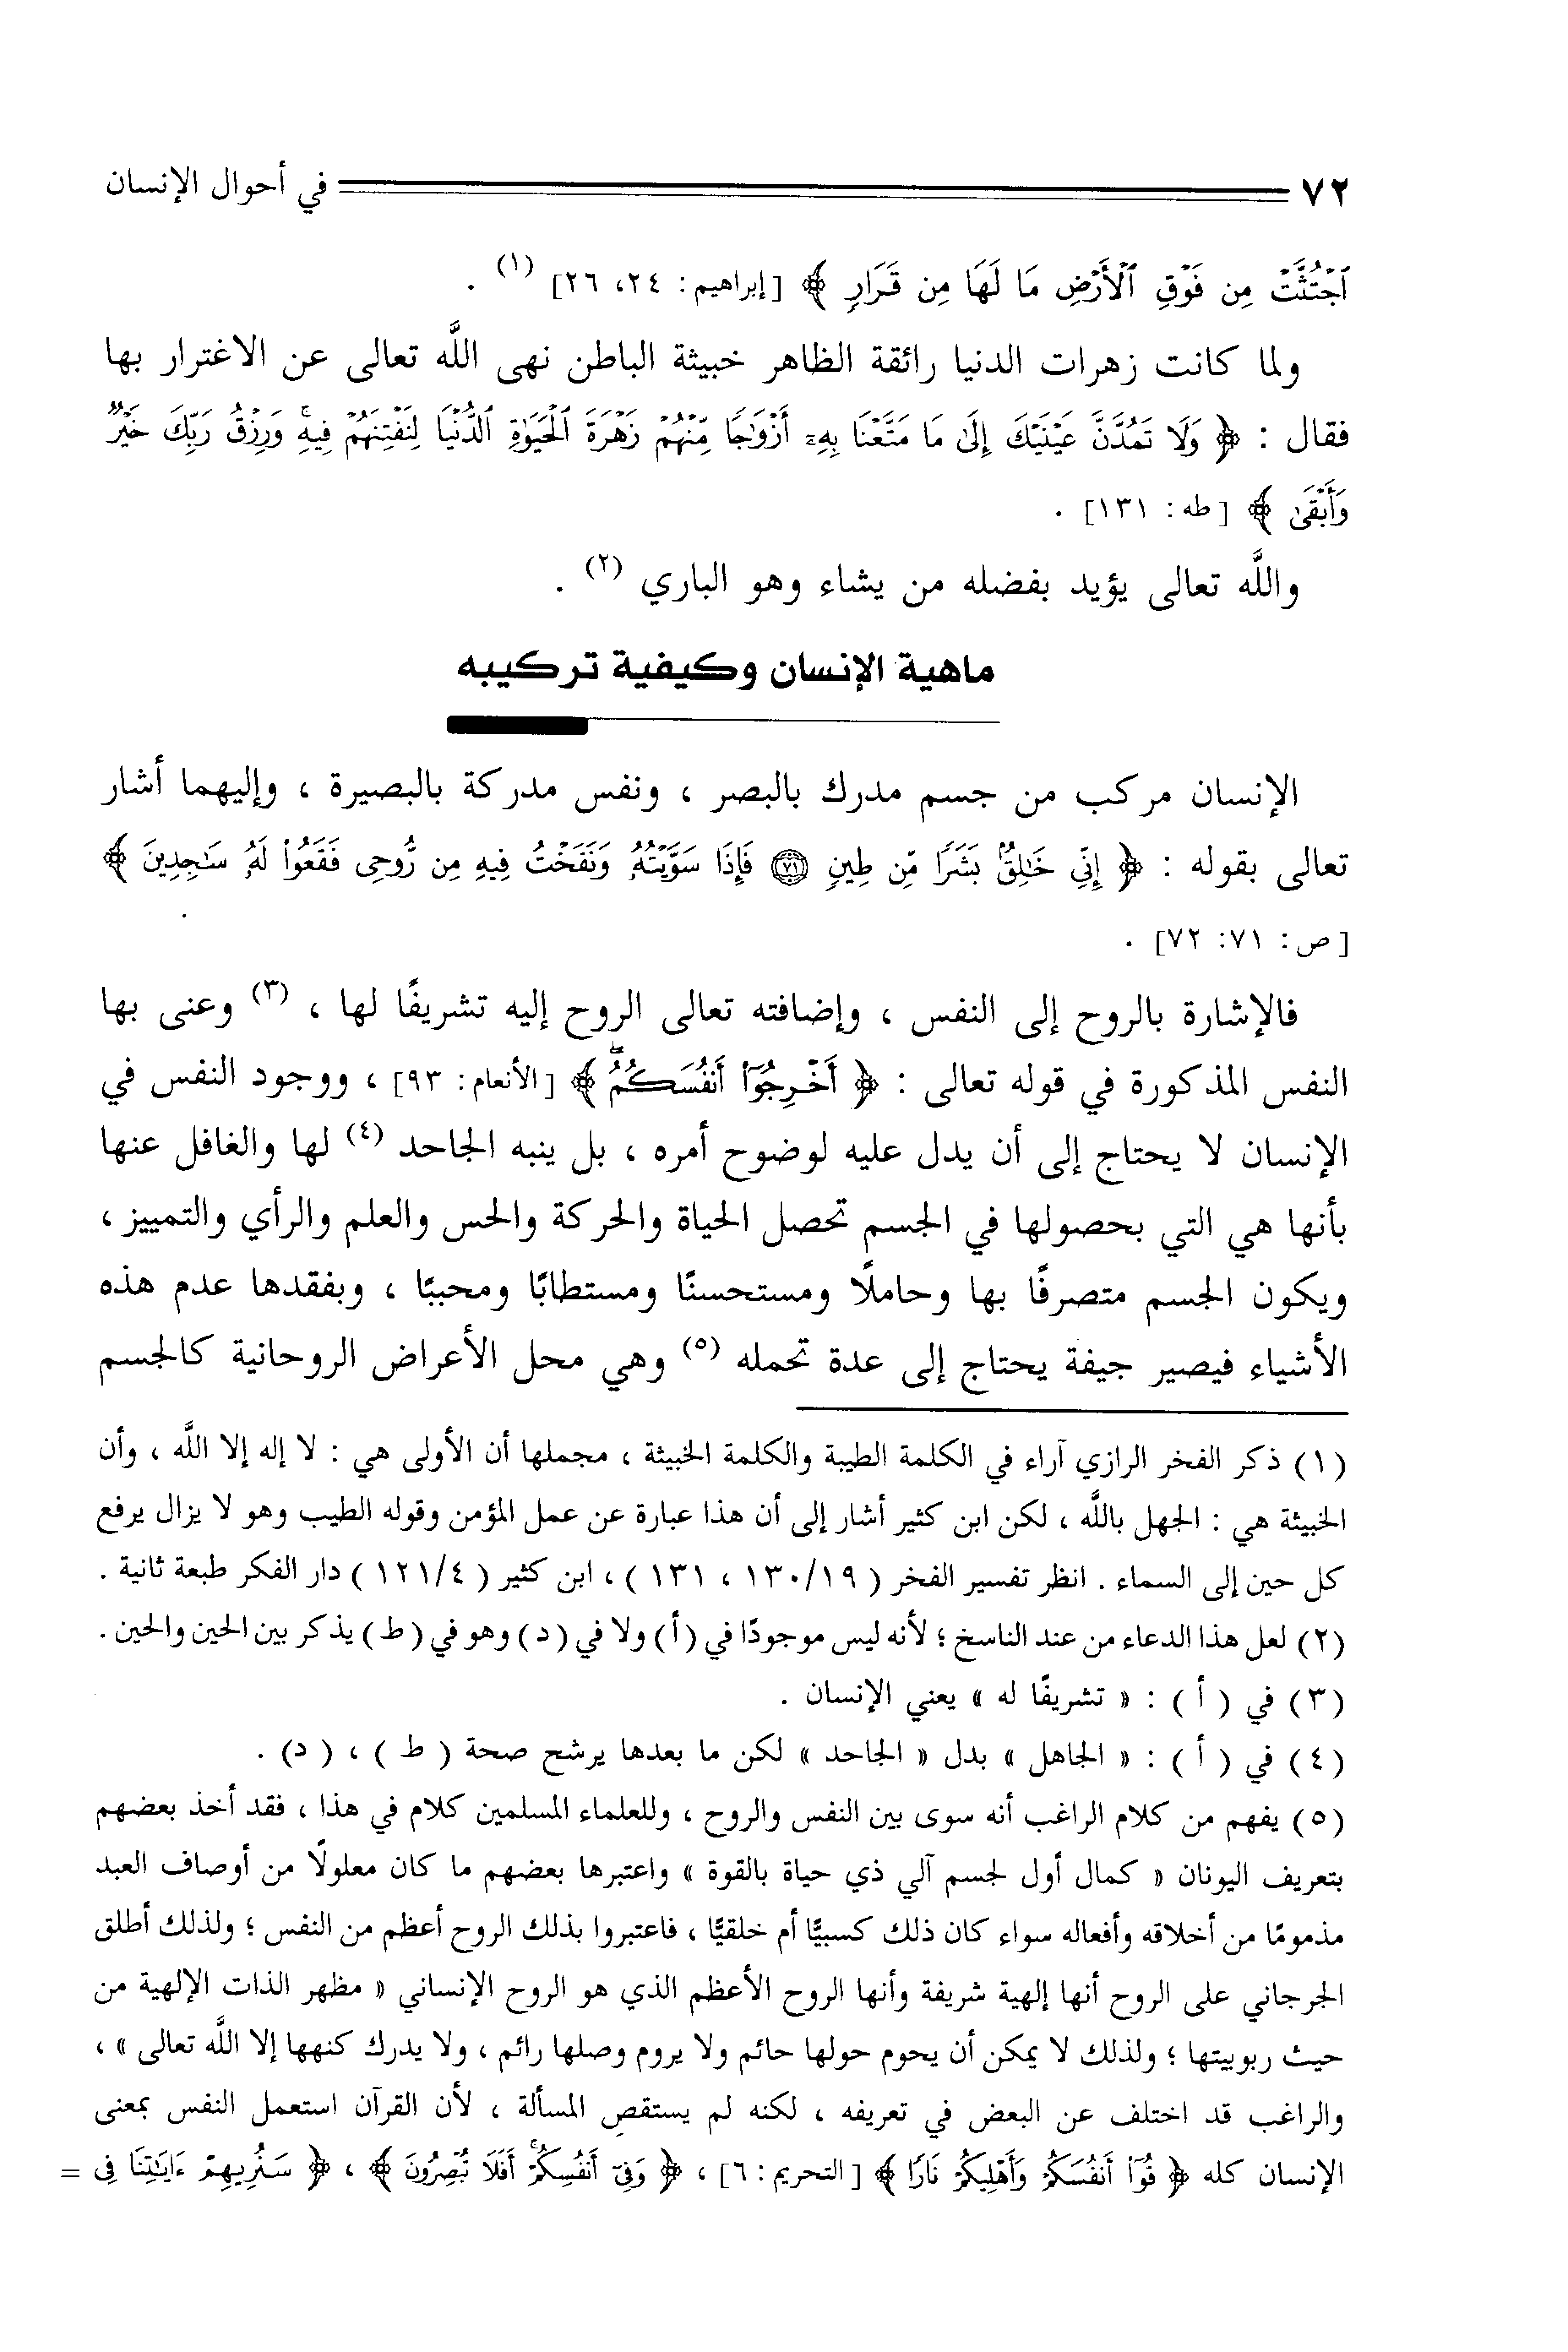 ٧٢ في أحوال الإنسان
ٱجْتُثَّتْ مِن فَوْقِ ٱلْأَرْضِ مَا لَهَا مِن قَرَارٍ ﴾ [إبراهيم: ٢٤، ٢٦] (١) .
ولما كانت زهرات الدنيا رائقة الظاهر خبيثة الباطن نهى اللَّه تعالى عن الاغترار بها
فقال : ﴿ وَلَا تَمُدَّنَّ عَيْنَيْكَ إِلَىٰ مَا مَتَّعْنَا بِهِۦٓ أَزْوَٰجًا مِّنْهُمْ زَهْرَةَ ٱلْحَيَوٰةِ ٱلدُّنْيَا لِنَفْتِنَهُمْ فِيهِ ۚ وَرِزْقُ رَبِّكَ خَيْرٌ
وَأَبْقَىٰ ﴾ [طه: ١٣١] .
واللَّه تعالى يؤيد بفضله من يشاء وهو الباري (٢) .
ماهية الإنسان وكيفية تركيبه
الإنسان مركب من جسم مدرك بالبصر ، ونفس مدركة بالبصيرة ، وإليهما أشار
تعالى بقوله : ﴿ إِنِّي خَٰلِقٌۢ بَشَرًا مِّن طِينٍ ٧١ فَإِذَا سَوَّيْتُهُۥ وَنَفَخْتُ فِيهِ مِن رُّوحِى فَقَعُوا۟ لَهُۥ سَٰجِدِينَ ﴾
[ص: ٧١: ٧٢] .
فالإشارة بالروح إلى النفس ، وإضافته تعالى الروح إليه تشريفًا لها ، (٣) وعنى بها
النفس المذكورة في قوله تعالى : ﴿ أَخْرِجُوٓا۟ أَنفُسَكُمُ ۖ ﴾ [الأنعام: ٩٣] ، ووجود النفس في
الإنسان لا يحتاج إلى أن يدل عليه لوضوح أمره ، بل ينبه الجاحد (٤) لها والغافل عنها
بأنها هي التي بحصولها في الجسم تحصل الحياة والحركة والحس والعلم والرأي والتمييز ،
ويكون الجسم متصرفًا بها وحاملًا ومستحسنًا ومستطابًا ومحببًا ، وبفقدها عدم هذه
الأشياء فيصير جيفة يحتاج إلى عدة تحمله (٥) وهي محل الأعراض الروحانية كالجسم
(١) ذكر الفخر الرازي آراء في الكلمة الطيبة والكلمة الخبيثة ، مجملها أن الأولى هي : لا إله إلا اللَّه ، وأن
الخبيثة هي : الجهل باللَّه ، لكن ابن كثير أشار إلى أن هذا عبارة عن عمل المؤمن وقوله الطيب وهو لا يزال يرفع
كل حين إلى السماء . انظر تفسير الفخر ( ١٣٠/١٩ ، ١٣١ ) ، ابن كثير ( ١٢١/٤ ) دار الفكر طبعة ثانية .
(٢) لعل هذا الدعاء من عند الناسخ ؛ لأنه ليس موجودًا في (أ) ولا في (د) وهو في (ط) يذكر بين الحين والحين .
(٣) في ( أ ) : « تشريفًا له » يعني الإنسان .
(٤) في ( أ ) : « الجاهل » بدل « الجاحد » لكن ما بعدها يرشح صحة ( ط ) ، ( د ) .
(٥) يفهم من كلام الراغب أنه سوى بين النفس والروح ، وللعلماء المسلمين كلام في هذا ، فقد أخذ بعضهم
بتعريف اليونان « كمال أول لجسم آلي ذي حياة بالقوة » واعتبرها بعضهم ما كان معلولًا من أوصاف العبد
مذمومًا من أخلاقه وأفعاله سواء كان ذلك كسبيًّا أم خلقيًّا ، فاعتبروا بذلك الروح أعظم من النفس ؛ ولذلك أطلق
الجرجاني على الروح أنها إلهية شريفة وأنها الروح الأعظم الذي هو الروح الإنساني « مظهر الذات الإلهية من
حيث ربوبيتها ؛ ولذلك لا يمكن أن يحوم حولها حائم ولا يروم وصلها رائم ، ولا يدرك كنهها إلا اللَّه تعالى » ،
والراغب قد اختلف عن البعض في تعريفه ، لكنه لم يستقصِ المسألة ، لأن القرآن استعمل النفس بمعنى
الإنسان كله ﴿ قُوٓا۟ أَنفُسَكُمْ وَأَهْلِيكُمْ نَارًا ﴾ [التحريم: ٦] ، ﴿ وَفِىٓ أَنفُسِكُمْ ۚ أَفَلَا تُبْصِرُونَ ﴾ ، ﴿ سَنُرِيهِمْ ءَايَٰتِنَا فِى =